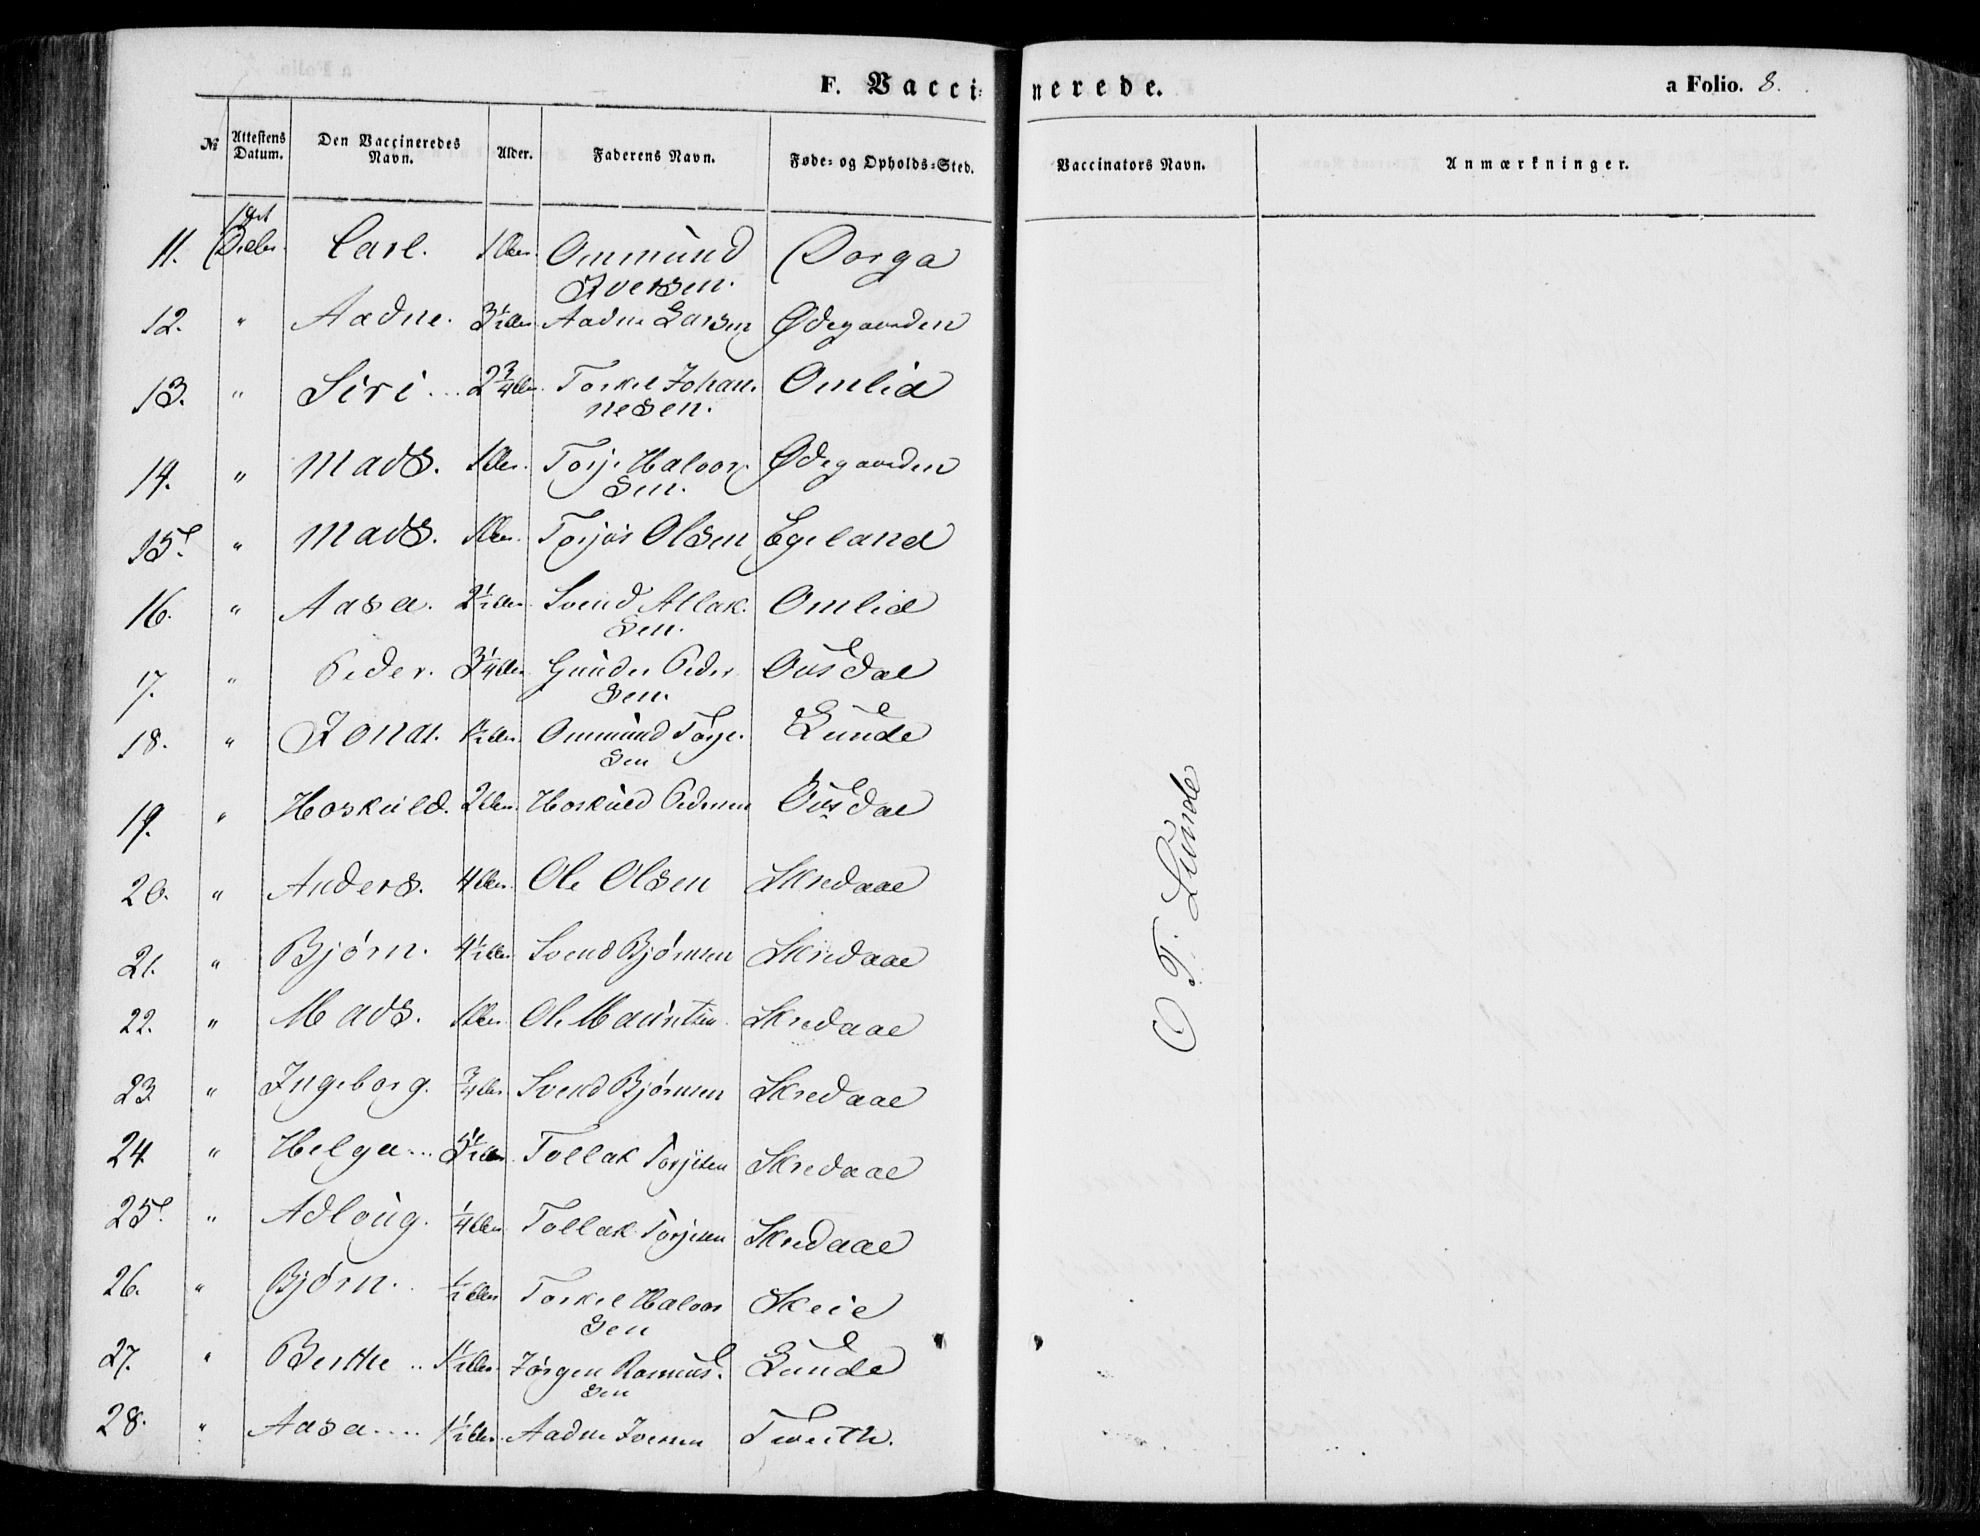 F. Vaccinerede.
a Folio. 8.
№ Attestens Datum. Den Vaccineredes Navn. Alder. Faderens Navn. Føde- og Opholds-Sted. Vaccinators Navn. Anmærkninger.
11. Carl. 1 Ommund Iversen. Dorga
12. " Aadne. 3½ Aadne Larsen Ødegaarden
13. " Siri... 2¾ Torkel Johannesen. Omlid
14. " Mads. 1 Torje Halvorsen. Ødegaarden
15. " Mads. Torjus Olsen Egeland
16. " Aasa. 2½ Svend Atlaksen. Omlid
17. " Peder. 3¼ Gunder Pedersen. Ousdal
18. " Jonas. 1½ Ommund Torjesen Lunde
19. " Hoskuld. 2 Hoskuld Pedersen Ousdal
20. " Anders. 4 Ole Olsen Skredaae
21. " Bjørn. 4½ Svend Bjørnsen Skredaae
22. " Mads. 1 Ole Mauritsen Skredaae
23. " Ingeborg. ¾ Svend Bjørnsen Skredaae
24. " Helga... Tollak Torjesen Skredaae
25. " Adloug. ¼ Tollak Torjesen Skredaae
26. " Bjørn. ½ Torkel Halvorsen Skeie
27. " Berthe.. 1½ Jørgen Rasmussen Lunde
28. " Aasa.... 1½ Aadne Iversen
O. T. Lunde